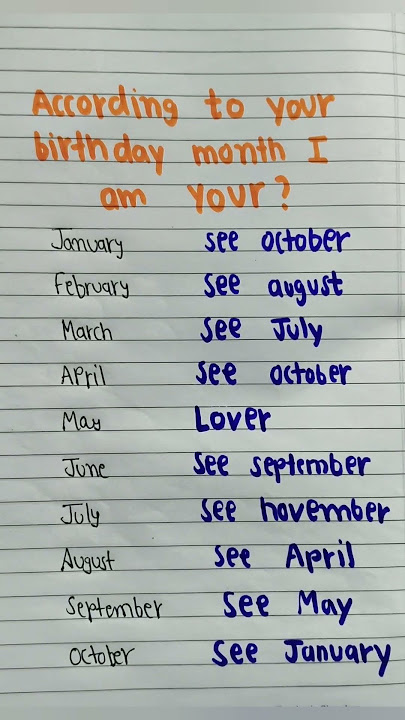 According to your
birthday month I
am your?
January see october
February see august
March see July
April see october
May Lover
June see september
July see november
August see April
September see May
October see January